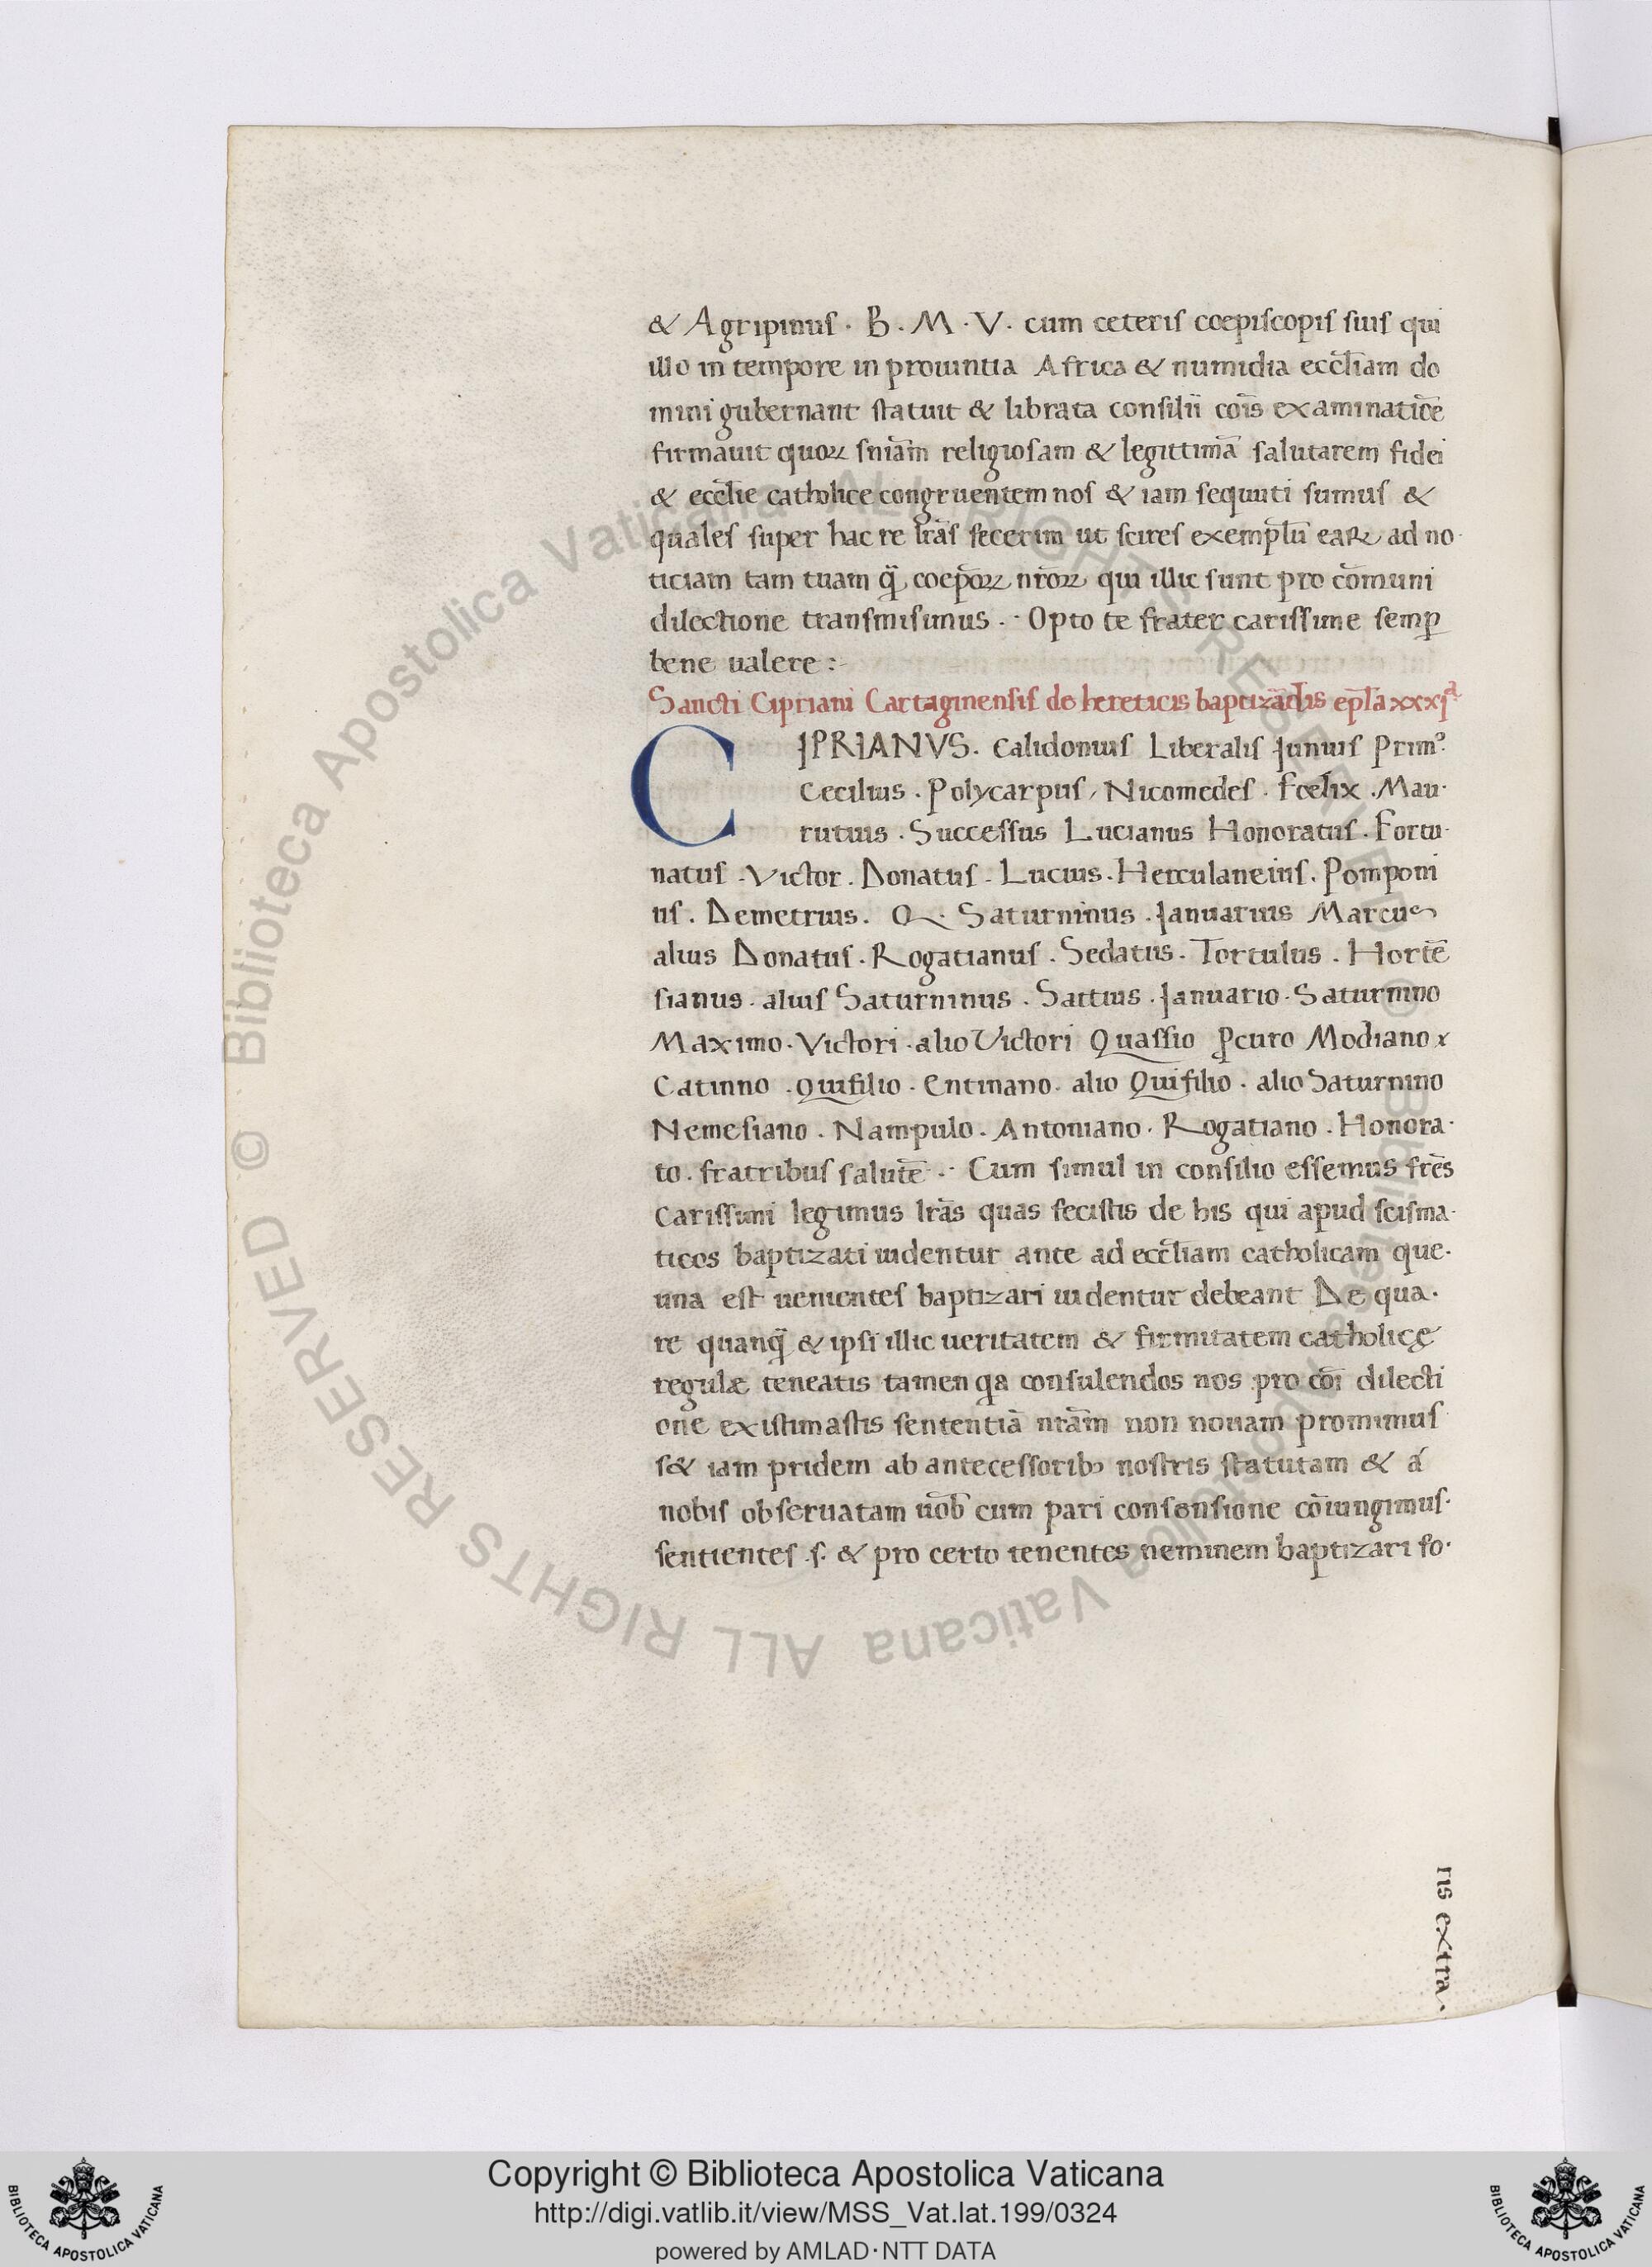 & Agripinus · B · M · V · cum ceteris coepiscopis suis qui
illo in tempore in prouintia Africa & numidia eccl̄iam do
mini gubernant statuit & librata consilii cōis examinatiōe
firmauit quoꝝ sniām religiosam & legittimā salutarem fidei
& eccl̄ie catholice congruentem nos & iam sequuti sumus &
quales super hac re lrās fecerim ut scires exemplū eaꝝ ad no·
ticiam tam tuam q̄ coepōꝝ nrōꝝ qui illic sunt pro cōmuni
dilectione transmisimus · · Opto te frater carissime semꝑ
bene ualere :-
Sancti Cipriani Cartaginensis de hereticis baptizādis epl̄a xxxjᵃ
CIPRIANVS . Calidonius Liberalis Junius Primꝰ.
Cecilius . Polycarpus, Nicomedes . Foelix . Mau·
rutius . Successus Lucianus Honoratus . Fortu·
natus . Victor . Donatus . Lucius . Herculaneius . Pomponi
us . Demetrius . Q . Saturninus . Januarius Marcus
alius Donatus . Rogatianus . Sedatus . Tertulus . Hortē
sianus . alius Saturninus . Sattius . Januario . Saturnino
Maximo . Victori . alio Victori Quassio ꝓcuro Modiano
Catinno . Quifilio . Entinano . alio Quifilio . alio Saturnino
Nemesiano . Nampulo . Antoniano . Rogatiano . Honora·
to . fratribus salutē · · Cum simul in consilio essemus frēs
Carissimi legimus lrās quas fecistis de his qui apud scisma·
ticos baptizati uidentur ante ad eccl̄iam catholicam que·
una est uenientes baptizari uidentur debeant De qua·
re quanq̄ & ipsi illic ueritatem & firmitatem catholicę
regulæ teneatis tamen qa consulendos nos pro cōi dilecti
one existimastis sententiā nrām non nouam promimus
s& iam pridem ab antecessoribꝰ nostris statutam & á
nobis obseruatam uōb cum pari consensione cōiungimus·
sentientes .s. & pro certo tenentes neminem baptizari fo·
ris extra .
© Biblioteca Apostolica Vaticana ALL RIGHTS RESERVED © Biblioteca Apostolica Vaticana ALL RIGHTS RESERVED
Copyright © Biblioteca Apostolica Vaticana
http://digi.vatlib.it/view/MSS_Vat.lat.199/0324
powered by AMLAD·NTT DATA
BIBLIOTECA APOSTOLICA VATICANA
BIBLIOTECA APOSTOLICA VATICANA